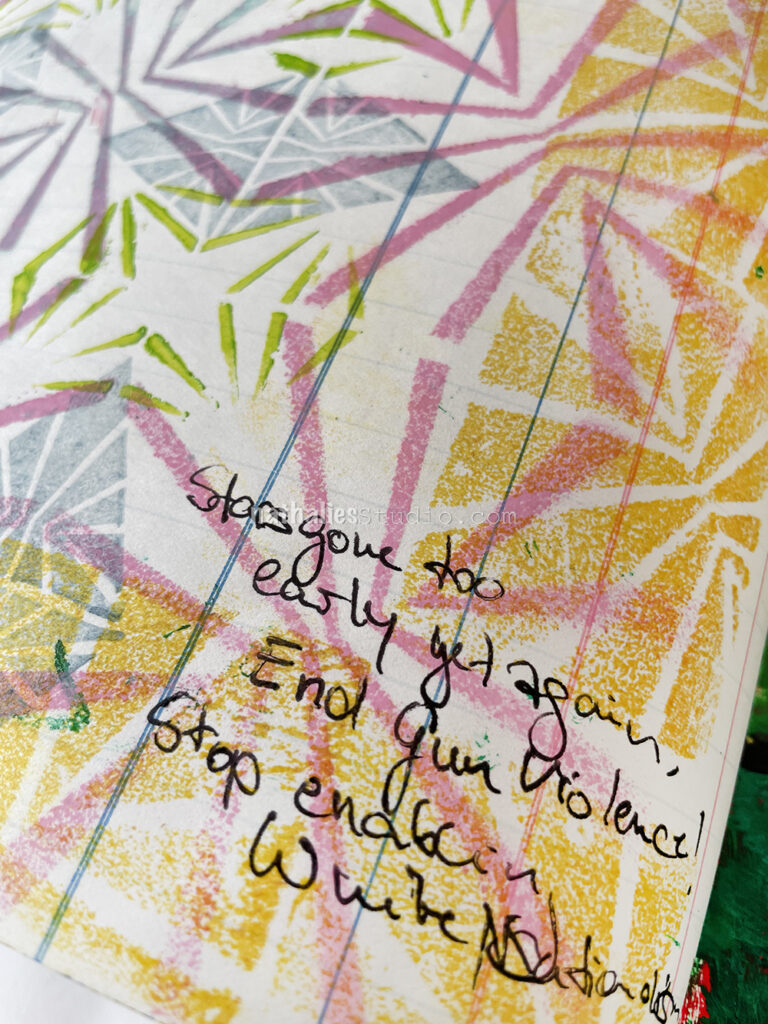 Stars gone too
early yet again,
End Gun Violence!
Stop enabling
White Nationalism
nathaliesStudio.com